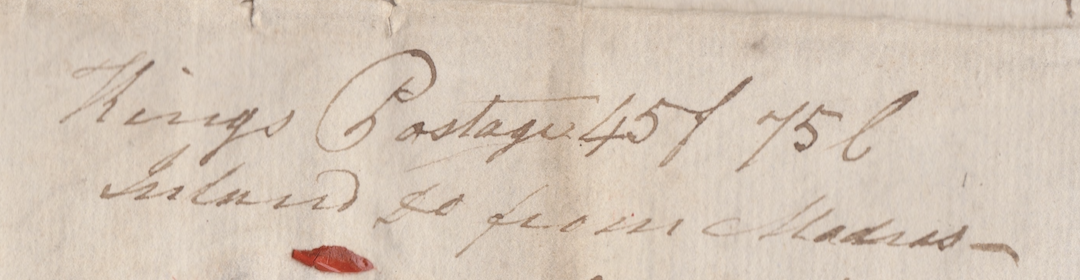 Kings Postage 45f 75c
Inland Do from Madras —